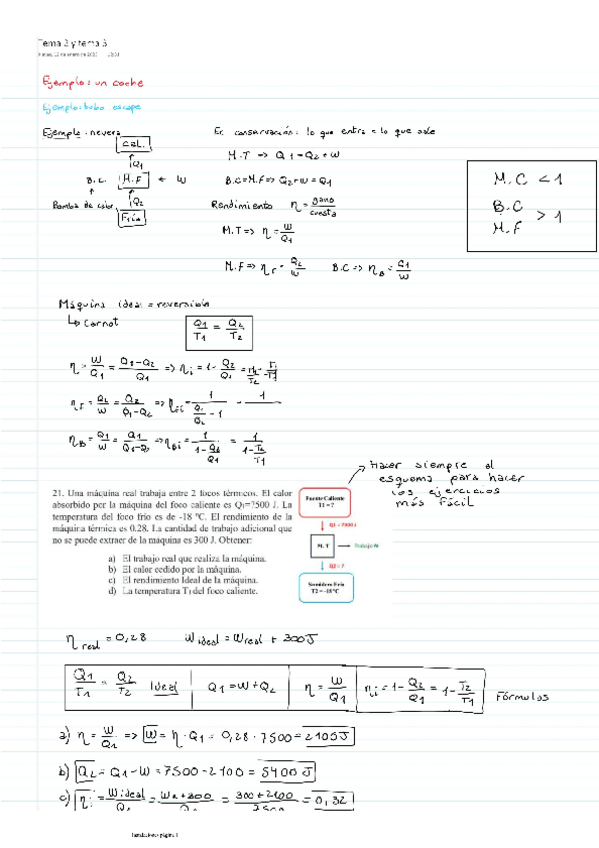 Tema 2 y tema 3
Ejemplo: un coche
Ejemplo: tubo escape
Ejemplo: nevera
Ec conservación: lo que entra = lo que sale
CAL.
↑Q1
M.T => Q1 = Q2 + W
B.C. M.F ← W
B.C = M.F => Q2 + W = Q1
Bomba de calor
↑Q2
Frío
Rendimiento η = gano / cuesta
M.T => η = W/Q1
M.C < 1
B.C
M.F > 1
M.F => ηF = Q2/W B.C => ηB = Q1/W
Máquina ideal = reversible
↳ Carnot
Q1/T1 = Q2/T2
η = W/Q1 = (Q1-Q2)/Q1 => ηi = 1 - Q2/Q1
ηF = Q2/W = Q2/(Q1-Q2) => ηFi = 1/(Q1/Q2 - 1)
ηB = Q1/W = Q1/(Q1-Q2) => ηBi = 1/(1-Q2/Q1) = 1/(1-T2/T1)
Hacer siempre el
esquema para hacer
los ejercicios
más fácil
21. Una máquina real trabaja entre 2 focos térmicos. El calor
absorbido por la máquina del foco caliente es Q1=7500 J. La
temperatura del foco frío es de -18 ºC. El rendimiento de la
máquina térmica es 0.28. La cantidad de trabajo adicional que
no se puede extraer de la maquina es 300 J. Obtener:
a) El trabajo real que realiza la máquina.
b) El calor cedido por la máquina.
c) El rendimiento Ideal de la máquina.
d) La temperatura T1 del foco caliente.
Fuente Caliente
T1 = ?
Q1 = 7500 J
M. T
Trabajo W
Q2 = ?
Sumidero Frío
T2 = -18 ºC
η real = 0,28 Wideal = Wreal + 300J
Q1/T1 = Q2/T2 Ideal Q1 = W + Q2 η = W/Q1 ηi = 1 - Q2/Q1 = 1 - T2/T1
Fórmulas
a) η = W/Q1 => W = η · Q1 = 0,28 · 7500 = 2100J
b) Q2 = Q1 - W = 7500 - 2100 = 5400 J
c) ηi = Wideal/Q1 = (WR + 300)/Q1 = (300 + 2100)/7500 = 0,32